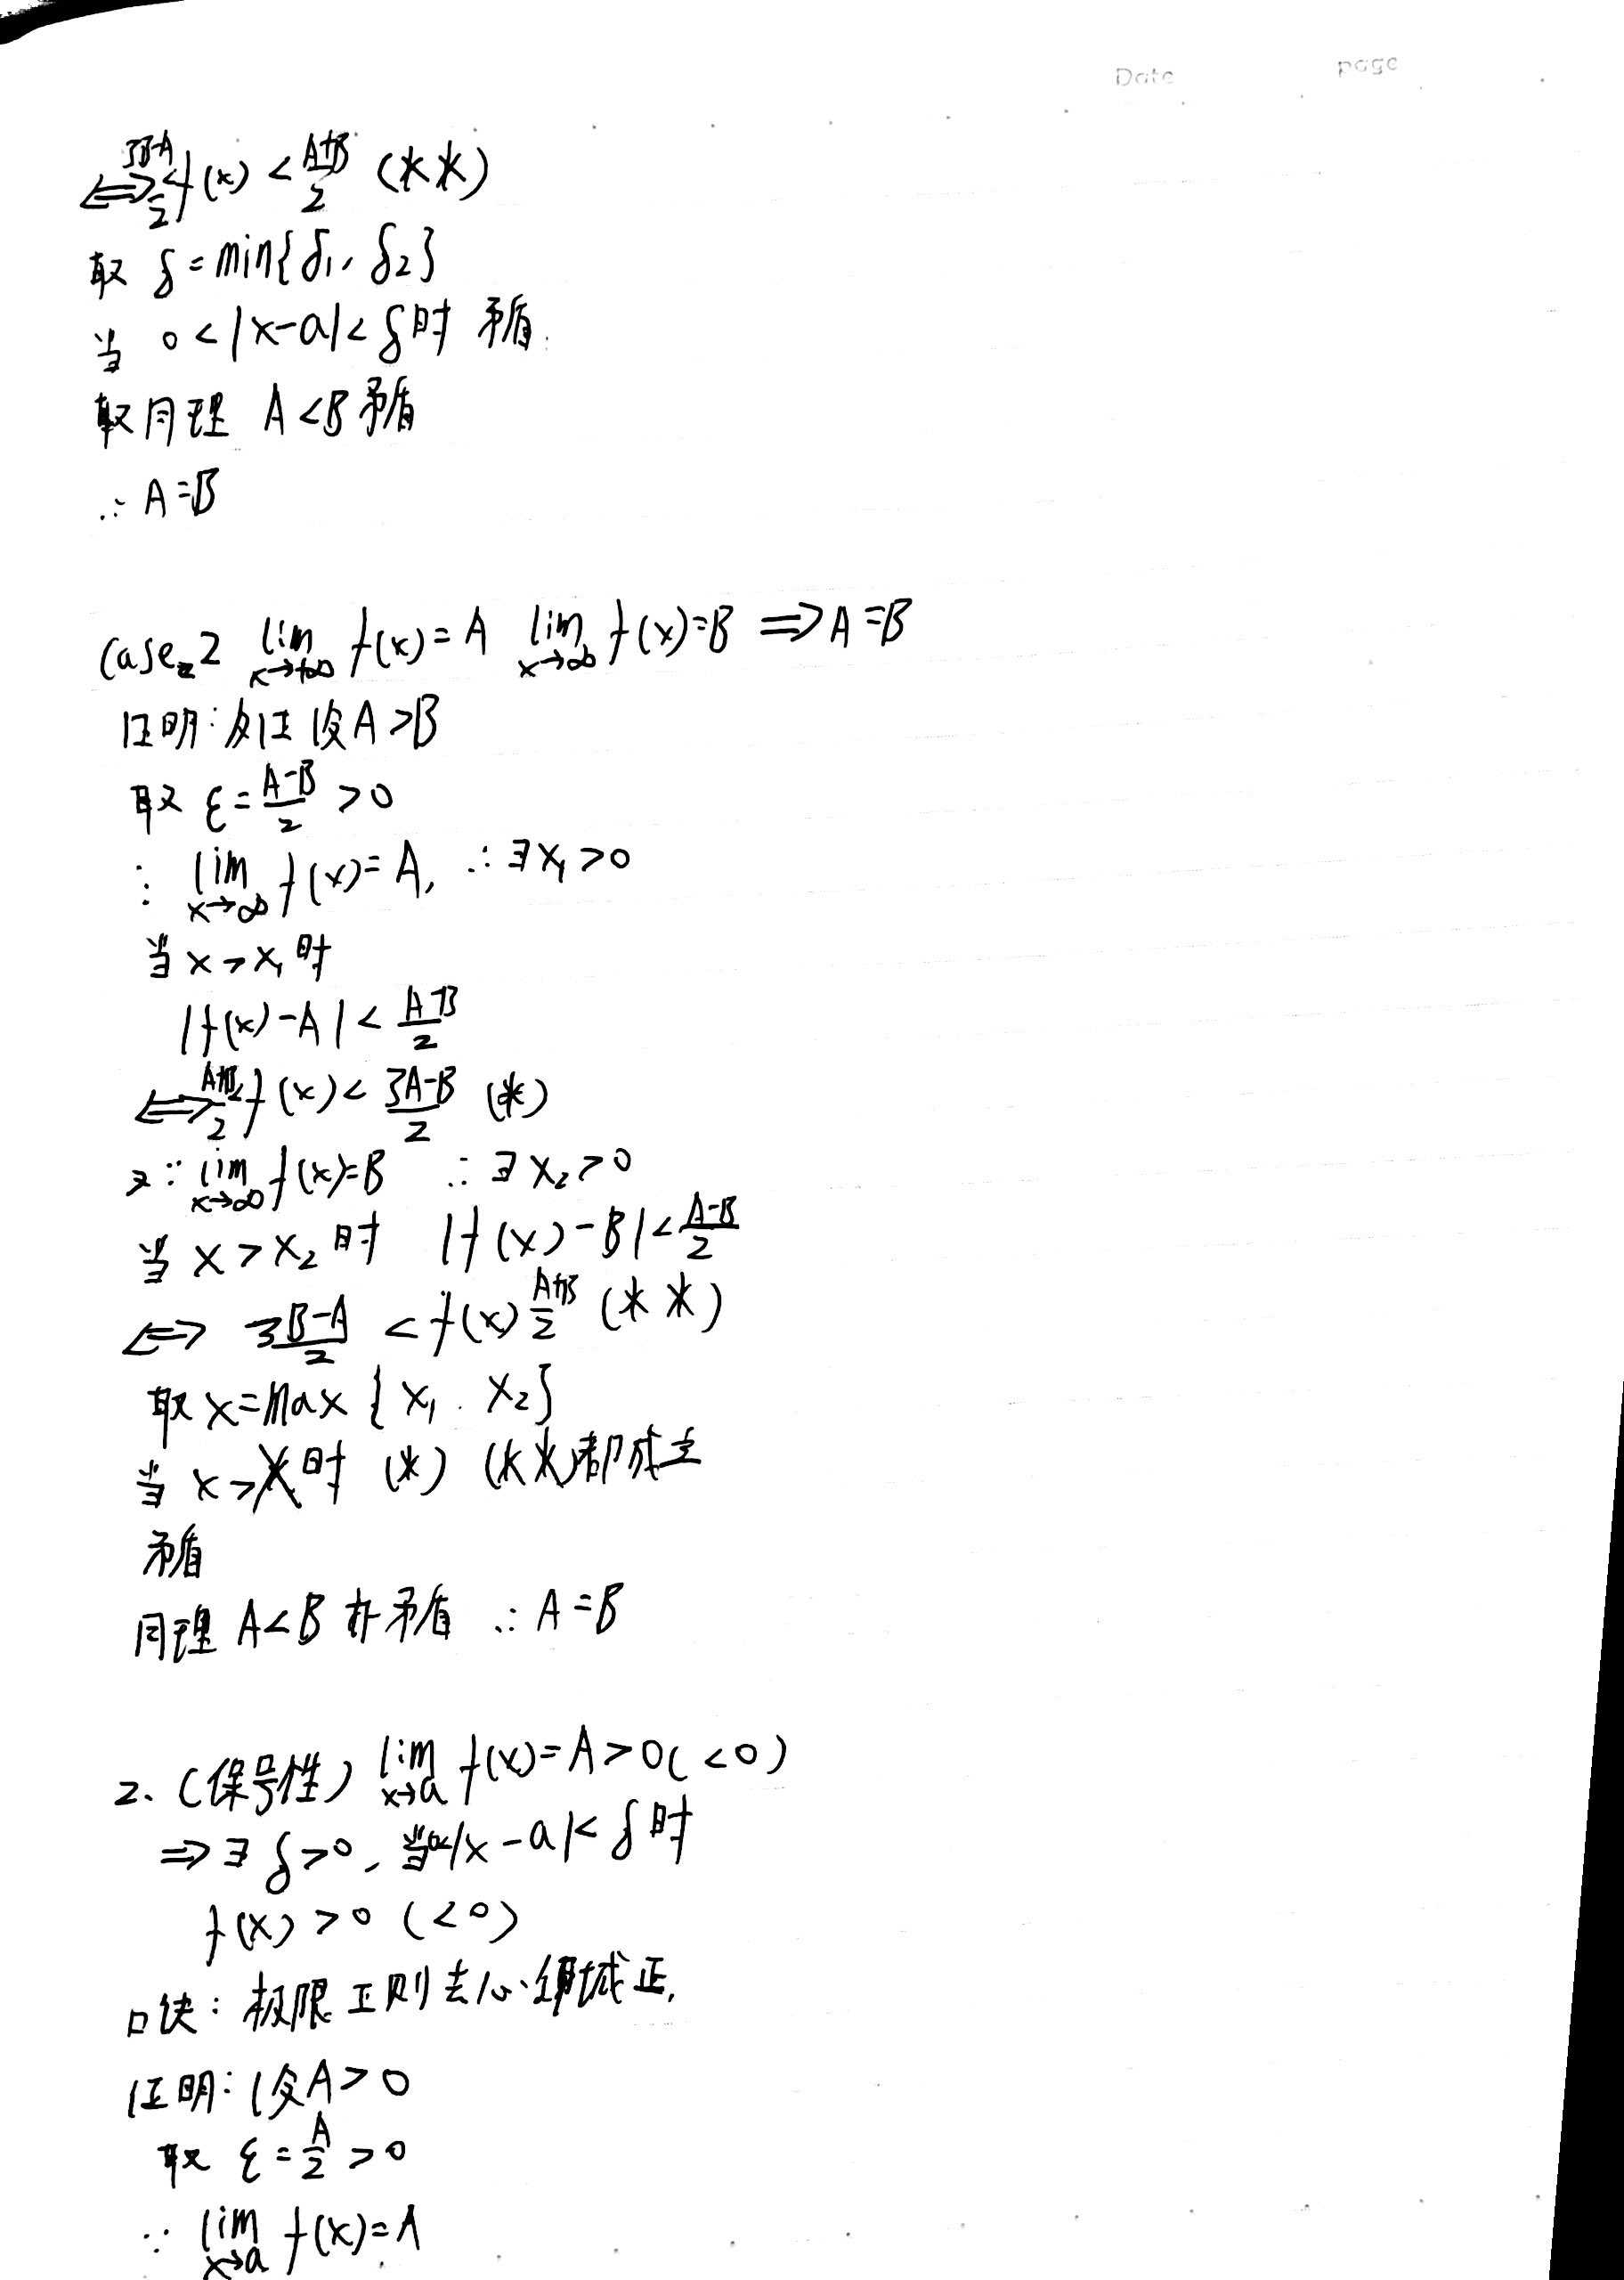 Date page
⟺ (3B-A)/2 < f(x) < (A+B)/2 (**)
取 δ = min{δ₁, δ₂}
当 0 < |x-a| < δ时 矛盾.
同理 A<B 矛盾
∴ A=B
Case 2 lim_{x→+∞} f(x) = A lim_{x→∞} f(x) = B ⟹ A=B
证明: 反证 设 A>B
取 ε = (A-B)/2 > 0
∵ lim_{x→∞} f(x) = A, ∴ ∃ x₁ > 0
当 x > x₁ 时
|f(x)-A| < (A-B)/2
⟺ (A+B)/2 < f(x) < (3A-B)/2 (*)
又∵ lim_{x→∞} f(x) = B ∴ ∃ x₂ > 0
当 x > x₂ 时 |f(x)-B| < (A-B)/2
⟺ (3B-A)/2 < f(x) (A+B)/2 (**)
取 X = Max {x₁. x₂}
当 x > X 时 (*) (**) 都成立
矛盾
同理 A<B 亦矛盾 ∴ A=B
2. (保号性) lim_{x→a} f(x) = A > 0 (<0)
⟹ ∃ δ > 0, 当 0<|x-a| < δ 时
f(x) > 0 (<0)
口诀: 极限正则去心邻域正.
证明: 设 A > 0
取 ε = A/2 > 0
∵ lim_{x→a} f(x) = A